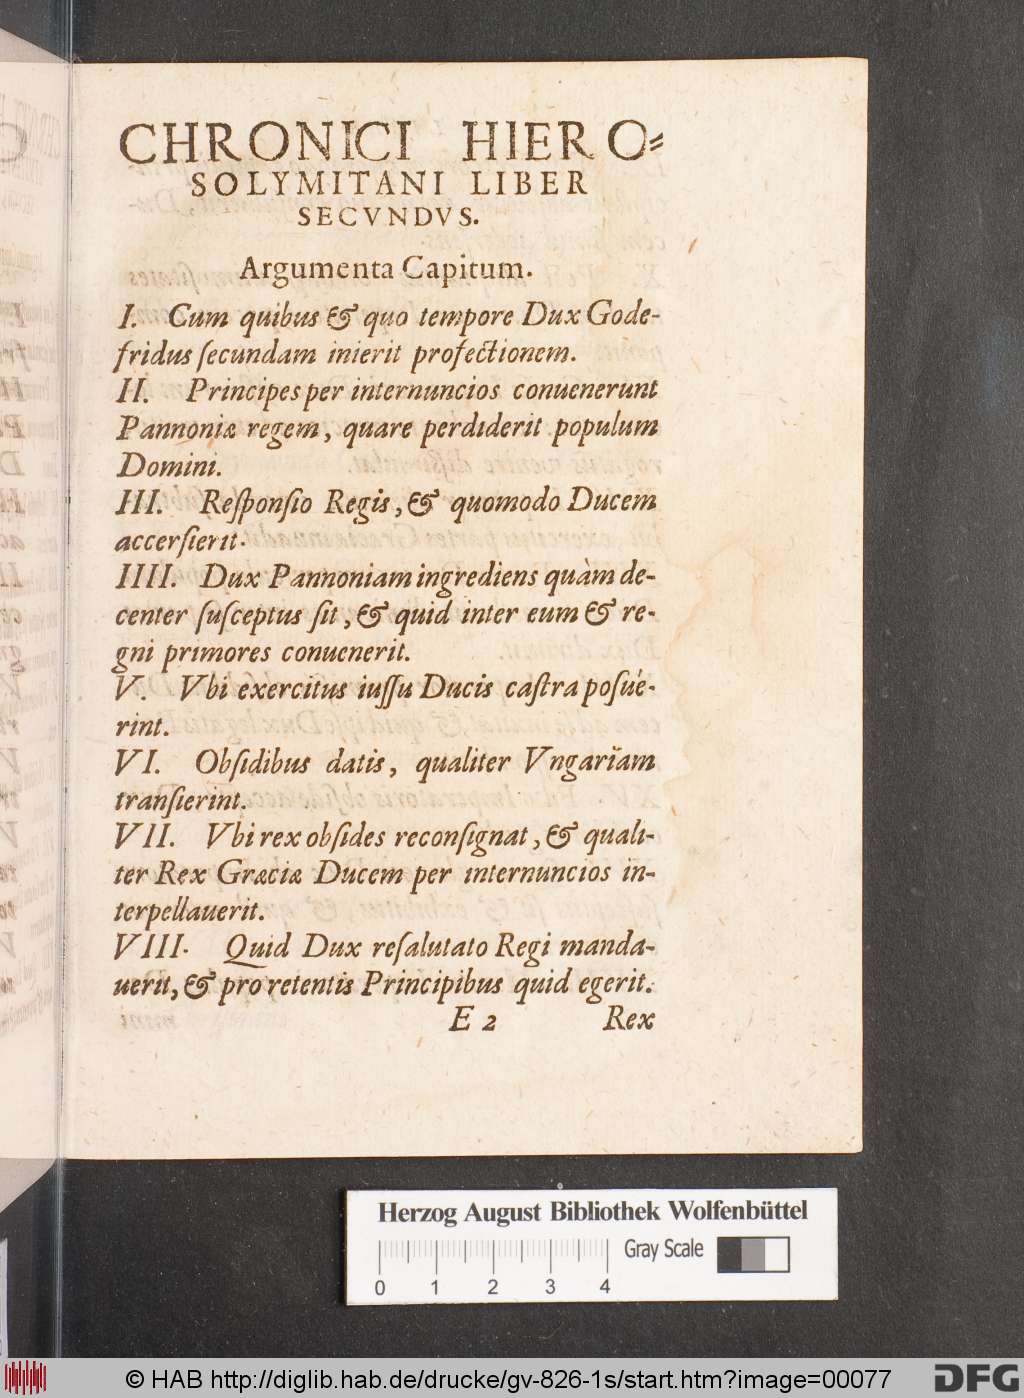 CHRONICI HIERO⸗
SOLYMITANI LIBER
SECVNDVS.
Argumenta Capitum.
I. Cum quibus & quo tempore Dux Gode-
fridus ſecundam inierit profectionem.
II. Principes per internuncios conuenerunt
Pannoniæ regem, quare perdiderit populum
Domini.
III. Reſponſio Regis, & quomodo Ducem
accerſierit.
IIII. Dux Pannoniam ingrediens quàm de-
center ſuſceptus ſit, & quid inter eum & re-
gni primores conuenerit.
V. Vbi exercitus iuſſu Ducis caſtra poſué-
rint.
VI. Obſidibus datis, qualiter Vngariam
tranſierint.
VII. Vbi rex obſides reconſignat, & quali-
ter Rex Græciæ Ducem per internuncios in-
terpellauerit.
VIII. Quid Dux reſalutato Regi manda-
uerit, & pro retentis Principibus quid egerit.
E 2 Rex
Herzog August Bibliothek Wolfenbüttel
Gray Scale
0 1 2 3 4
© HAB http://diglib.hab.de/drucke/gv-826-1s/start.htm?image=00077
DFG